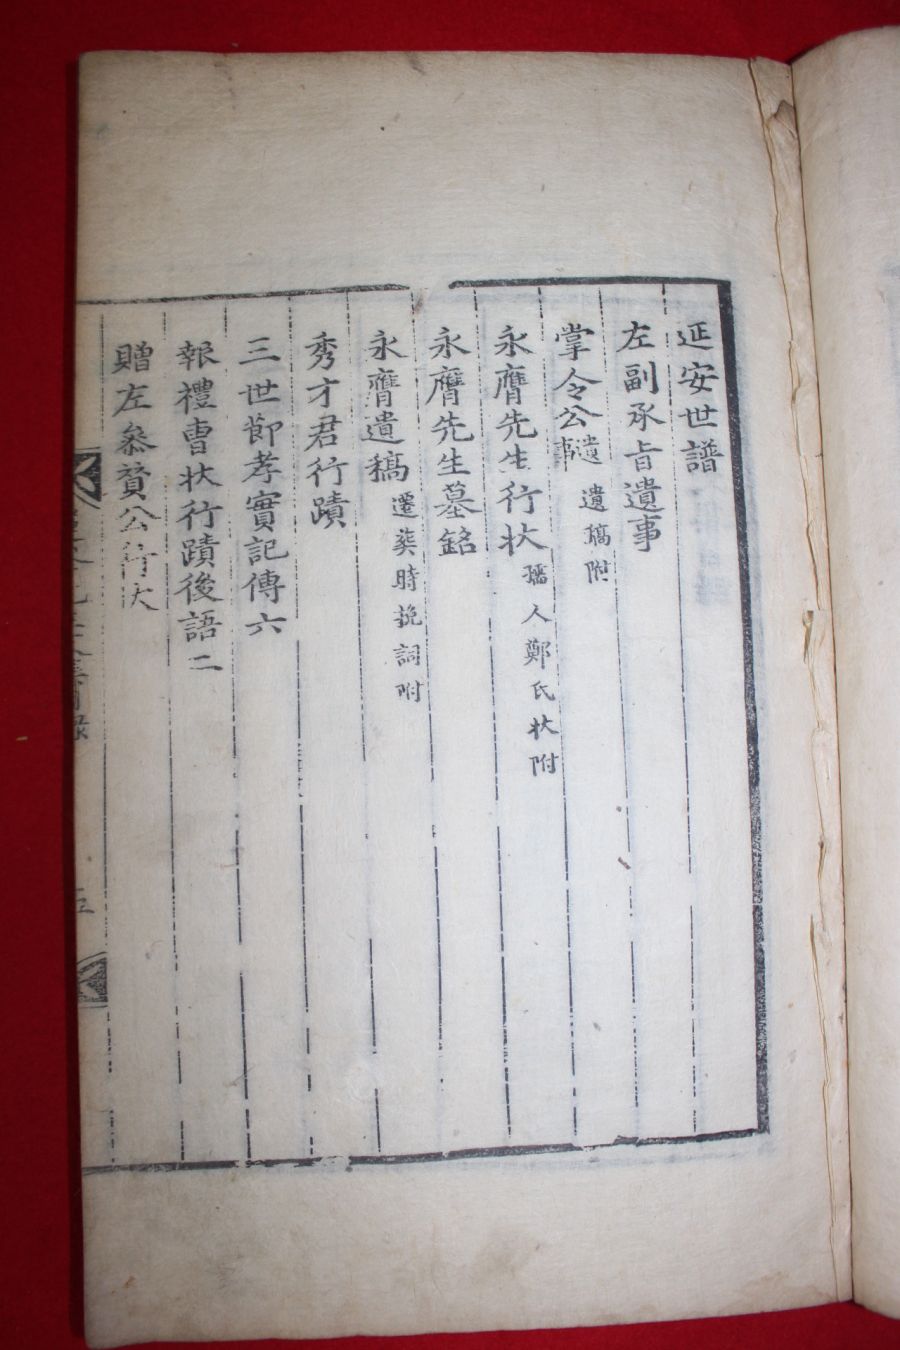 延安世譜
左副承旨遺事
掌令公遺事 遺稿附
永膺先生行狀 孺人鄭氏狀附
永膺先生墓銘
永膺遺稿 遷葬時挽詞附
秀才君行蹟
三世節孝實記傳六
報禮曹狀行蹟後語二
贈左叅贊公行狀